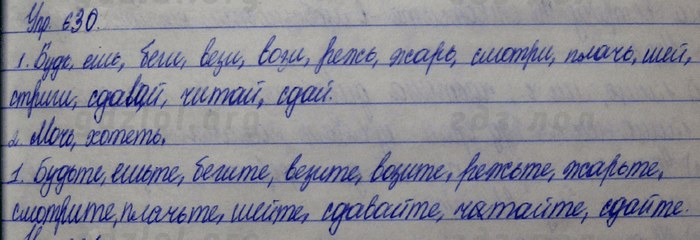 Упр. 630.
1. Будь, ешь, беги, вези, вози, режь, жарь, смотри, плачь, шей,
стриги, сдавай, читай, сдай.
2. Мочь, хотеть.
1. Будьте, ешьте, бегите, везите, возите, режьте, жарьте,
смотрите, плачьте, шейте, сдавайте, читайте, сдайте.